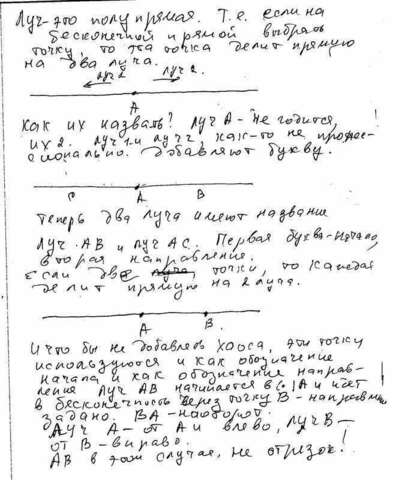 Луч-это полупрямая. Т.е. если на
бесконечной прямой выбрать
точку, то эта точка делит прямую
на два луча.
луч 2 луч 2.
А
Как их назвать? Луч А - не годится,
их 2. Луч 1 и луч 2, как-то не профес-
сионально. Добавляют букву.
С А В
Теперь два луча имеют название
Луч АВ и луч АС. Первая буква-начало,
вторая направление.
Если две точки, то каждая
делит прямую на 2 луча.
А В
И что бы не добавлять хаоса, эти точку
используются и как обозначение
начала и как обозначение направ-
ления Луч АВ начинается в А и идет
в бесконечность через точку В - направление
задано. ВА - наоборот.
Луч А - от А и влево, луч В -
от В - вправо.
АВ в этом случае, не отрезок!